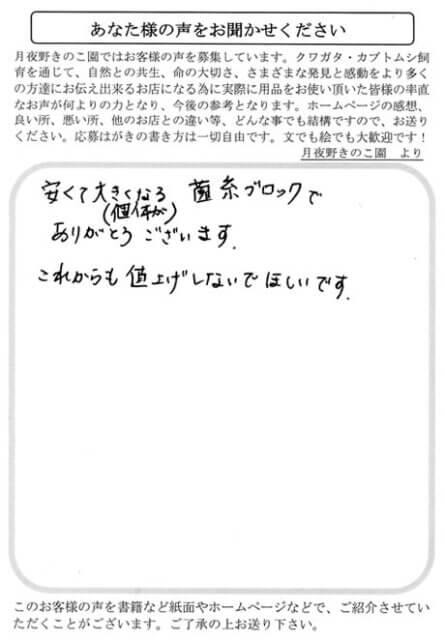 あなた様の声をお聞かせください
月夜野きのこ園ではお客様の声を募集しています。クワガタ・カブトムシ飼
育を通じて、自然との共生、命の大切さ、さまざまな発見と感動をより多く
の方達にお伝え出来るお店になる為に実際に用品をお使い頂いた皆様の率直
なお声が何よりの力となり、今後の参考となります。ホームページの感想、
良い所、悪い所、他のお店との違い等、どんな事でも結構ですので、お送り
ください。応募はがきの書き方は一切自由です。文でも絵でも大歓迎です！
月夜野きのこ園　より
安くて大きくなる 菌糸ブロックで
(個体が)
ありがとうございます.
これからも値上げしないでほしいです.
このお客様の声を書籍など紙面やホームページなどで、ご紹介させてい
ただくことがございます。ご了承の上お送り下さい。